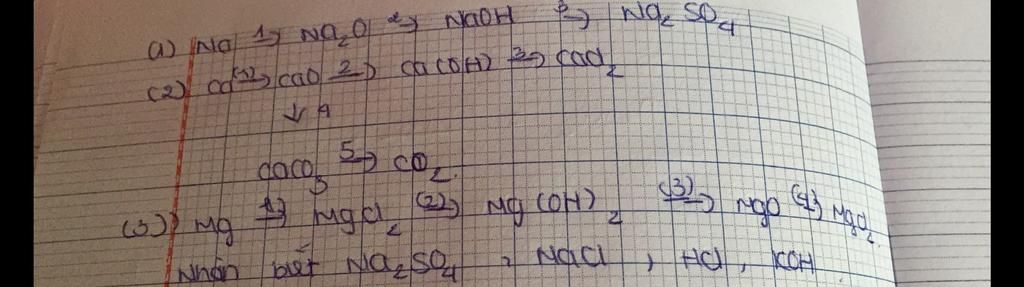 (1) Na 1→ Na₂O 2→ NaOH 3→ Na₂SO₄
(2) Ca (1)→ CaO 2→ Ca(OH) 3→ CaCl₂
↓ 4
CaCO₃ 5→ CO₂
(3) Mg 1→ MgCl₂ (2)→ Mg(OH)₂ (3)→ MgO (4)→ MgCl₂
Nhận biết Na₂SO₄, NaCl, HCl, KOH